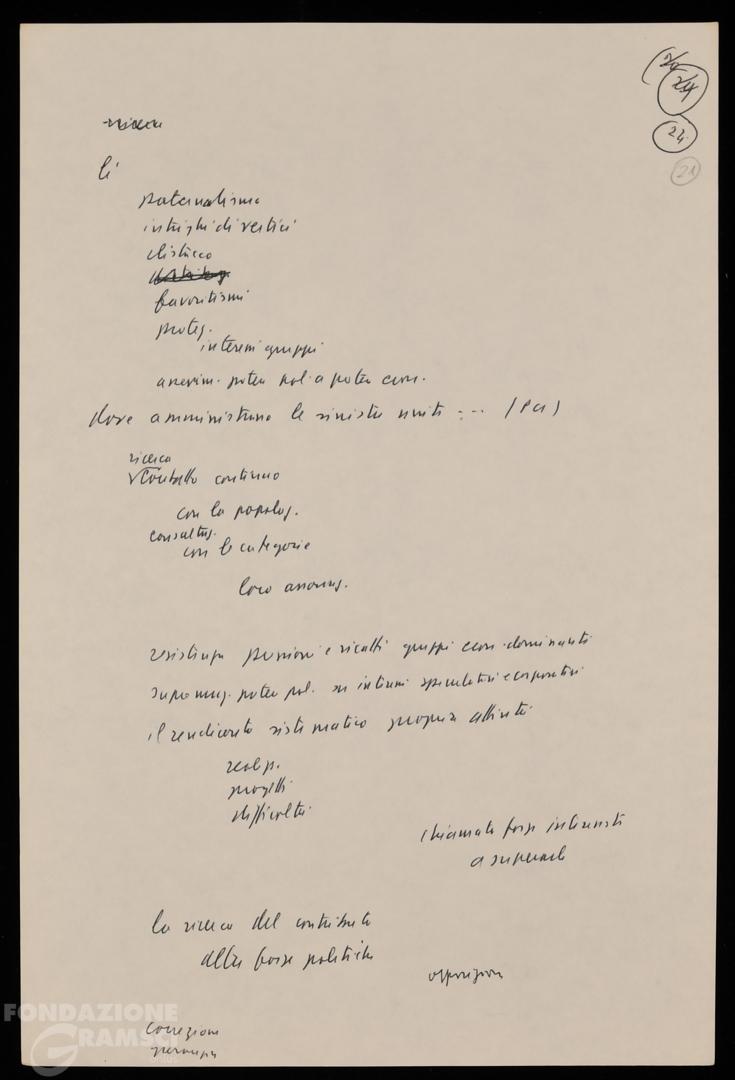 24
24
24
21
ricerca
lì
paternalismo
intrighi di vertici
distacco
favoritismi
proteg.
interessi gruppi
asservim. potere pol. a potere econ.
dove amministrano le sinistre unite ... (PCI)
ricerca
Contatto continuo
con la popolaz.
consultaz.
con le categorie
loro associaz.
resistenza pressioni e ricatti gruppi econ. dominanti
supremaz. potere pol. su interessi speculativi e corporativi
il rendiconto sistematico propria attività
realizz.
progetti
difficoltà
chiamata forze interessate
a superarle
la ricerca del contributo
altre forze politiche
opposizione
Correzione
FONDAZIONE
GRAMSCI